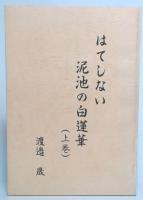 はてしない
泥池の白蓮華
(上巻)
渡邉 蔵